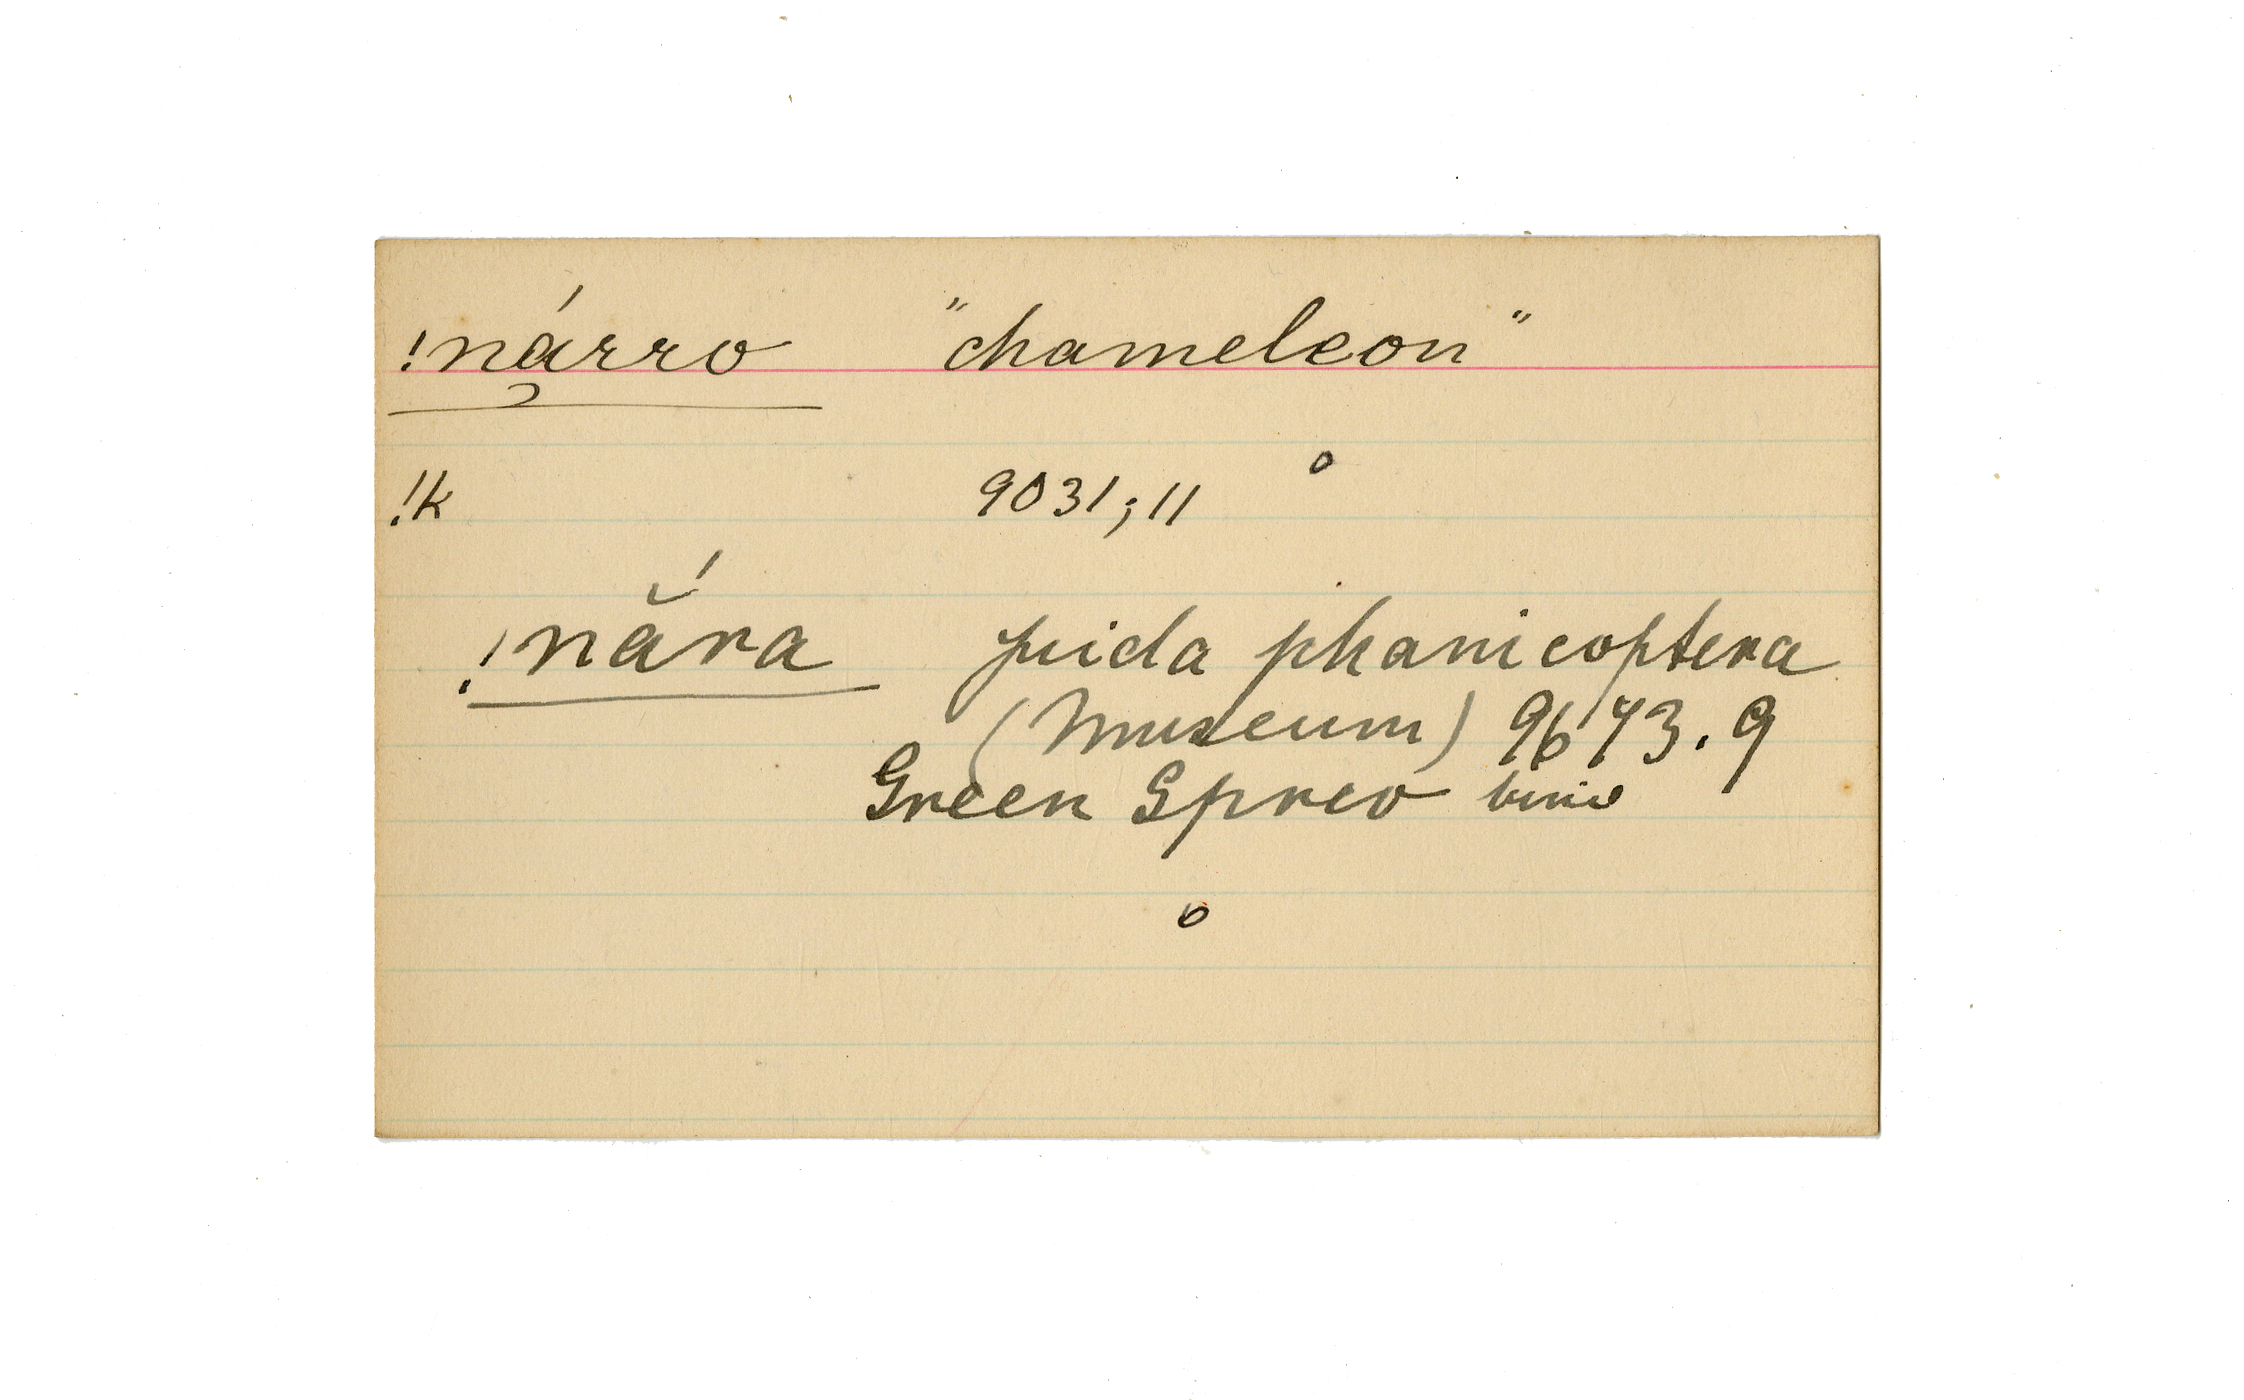 !nạ́rro "chameleon"
!k 9031; 11
!nắra juida phanicoptera
(Museum) 9673.9
Green Spreo